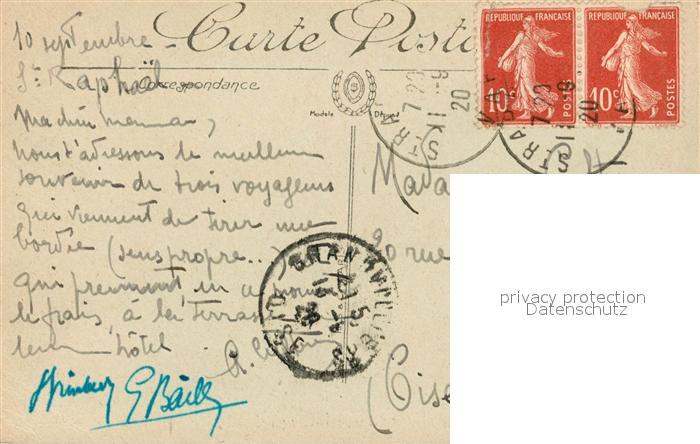 10 septembre
St Raphaël
Carte Posta
Correspondance
Modèle Déposé
Ma chère maman,
nous t'adressons le meilleur
souvenir de trois voyageurs
qui viennent de tirer une
bordée (sens propre..)
qui prennent, en ce moment
le frais, à la terrasse
leur hôtel
G Bailly
REPUBLIQUE FRANÇAISE
10c
POSTES
REPUBLIQUE FRANÇAISE
10c
POSTES
ST RAPHA
7 20
9
20
ST RAPHA
7 20
9
20
VAR
GRANVILLIERS
Mada
20 rue
(Oise
privacy protection
Datenschutz